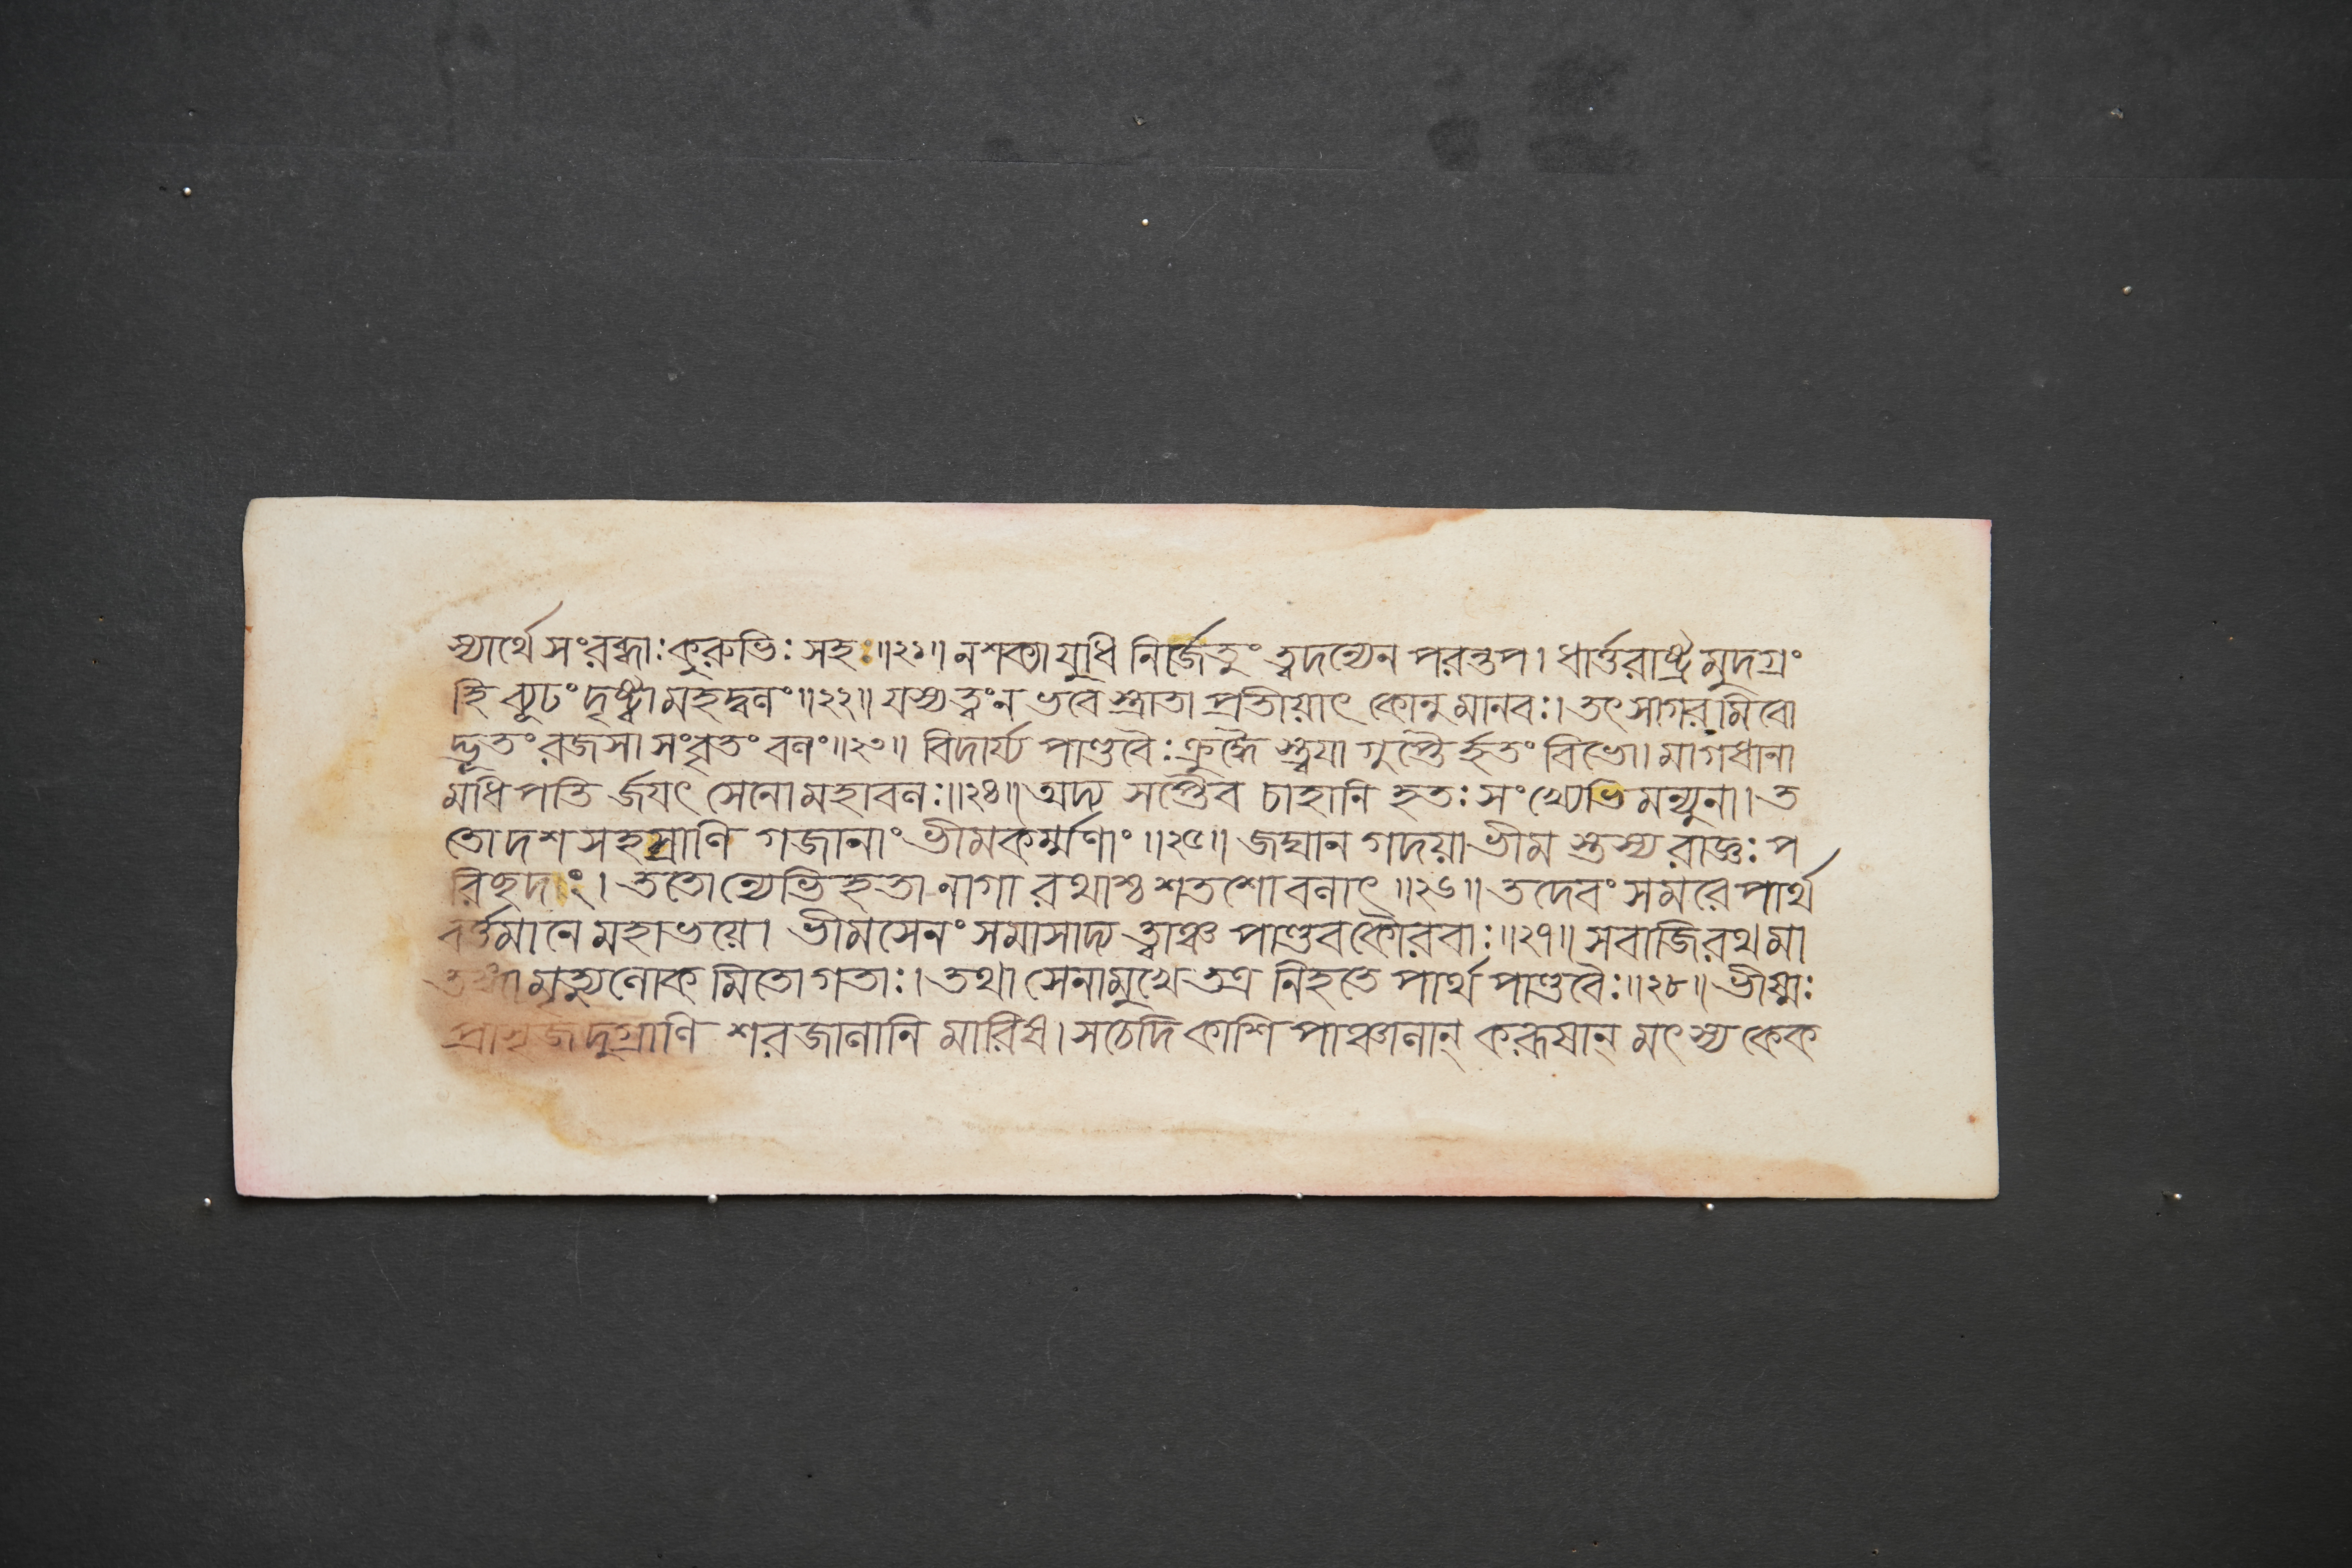 স্যার্থে সংরব্ধাঃ কুরুভিঃ সহ ॥২১॥ ন শক্যা যুধি নির্জেতুং ত্বদন্যেন পরন্তপ। ধার্ত্তরাষ্ট্রমুদগ্রং
হি ব্যূঢং দৃষ্ট্বা মহদ্বলং ॥২২॥ যস্য ত্বং ন ভবেস্ত্রাতা প্রতীয়াৎ কোনু মানবঃ। তৎ সাগরমিবো
দ্ধূতং রজসা সংবৃতং বলং ॥২৩॥ বিদার্য্য পাণ্ডবৈঃ ক্রুদ্ধৈ স্ত্বয়া গুপ্তৈ র্হতং বিভো। মাগধানা
মধিপতি র্জয়ৎ সেনো মহাবলঃ ॥২৪॥ অদ্য সপ্তৈব চাহানি হতঃ সংখ্যেভিমন্যুনা। ত
তো দশ সহস্রাণি গজানাং ভীমকর্ম্মণাং ॥২৫॥ জঘান গদয়া ভীম স্তস্য রাজ্ঞঃ প
রিছদাং। ততোন্যেভিহতা নাগা রথাশ্চ শতশো বলাৎ ॥২৬॥ তদেবং সমরে পার্থ
বর্ত্তমানে মহাভয়ে। ভীমসেনং সমাসাদ্য ত্বাঞ্চ পাণ্ডব কৌরবাঃ ॥২৭॥ সবাজিরথমা
তঙ্গা মৃত্যুলোক মিতো গতাঃ। তথা সেনামুখে তত্র নিহতে পার্থ পাণ্ডবৈঃ ॥২৮॥ ভীষ্মঃ
প্রাসৃজদুগ্রাণি শরজালানি মারিষ। স চেদি কাশি পাঞ্চালান্ করূষান্ মৎস্য কেক